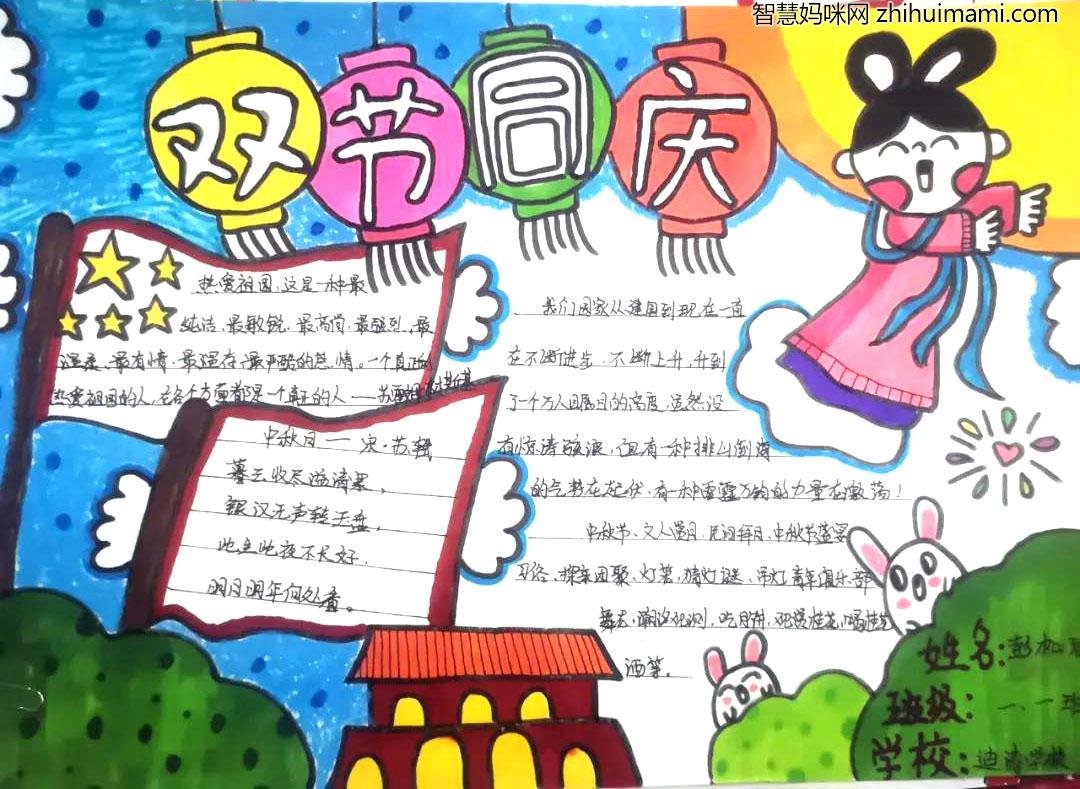 智慧妈咪网 zhihuimami.com
双节同庆
热爱祖国,这是一种最
纯洁、最敏锐、最高尚、最强烈、最
温柔、最有情、最温存、最严酷的感情。一个真正的
热爱祖国的人,在各个方面都是一个真正的人——苏
中秋月——宋·苏轼
暮云收尽溢清寒,
银汉无声转玉盘。
此生此夜不长好,
明月明年何处看。
我们国家从建国到现在一直
在不断进步,不断上升,升到
了一个万人瞩目的高度,虽然没
有惊涛骇浪,但有一种排山倒海
的气势在起伏,有一种雷霆万钧的力量在激荡!
中秋节、文人赏月、民间拜月、中秋节宴
习俗、探亲团聚、灯笼、猜灯谜、吊灯
舞 吃月饼、
酒等。
姓名:彭
班级:一、一班
学校:迪